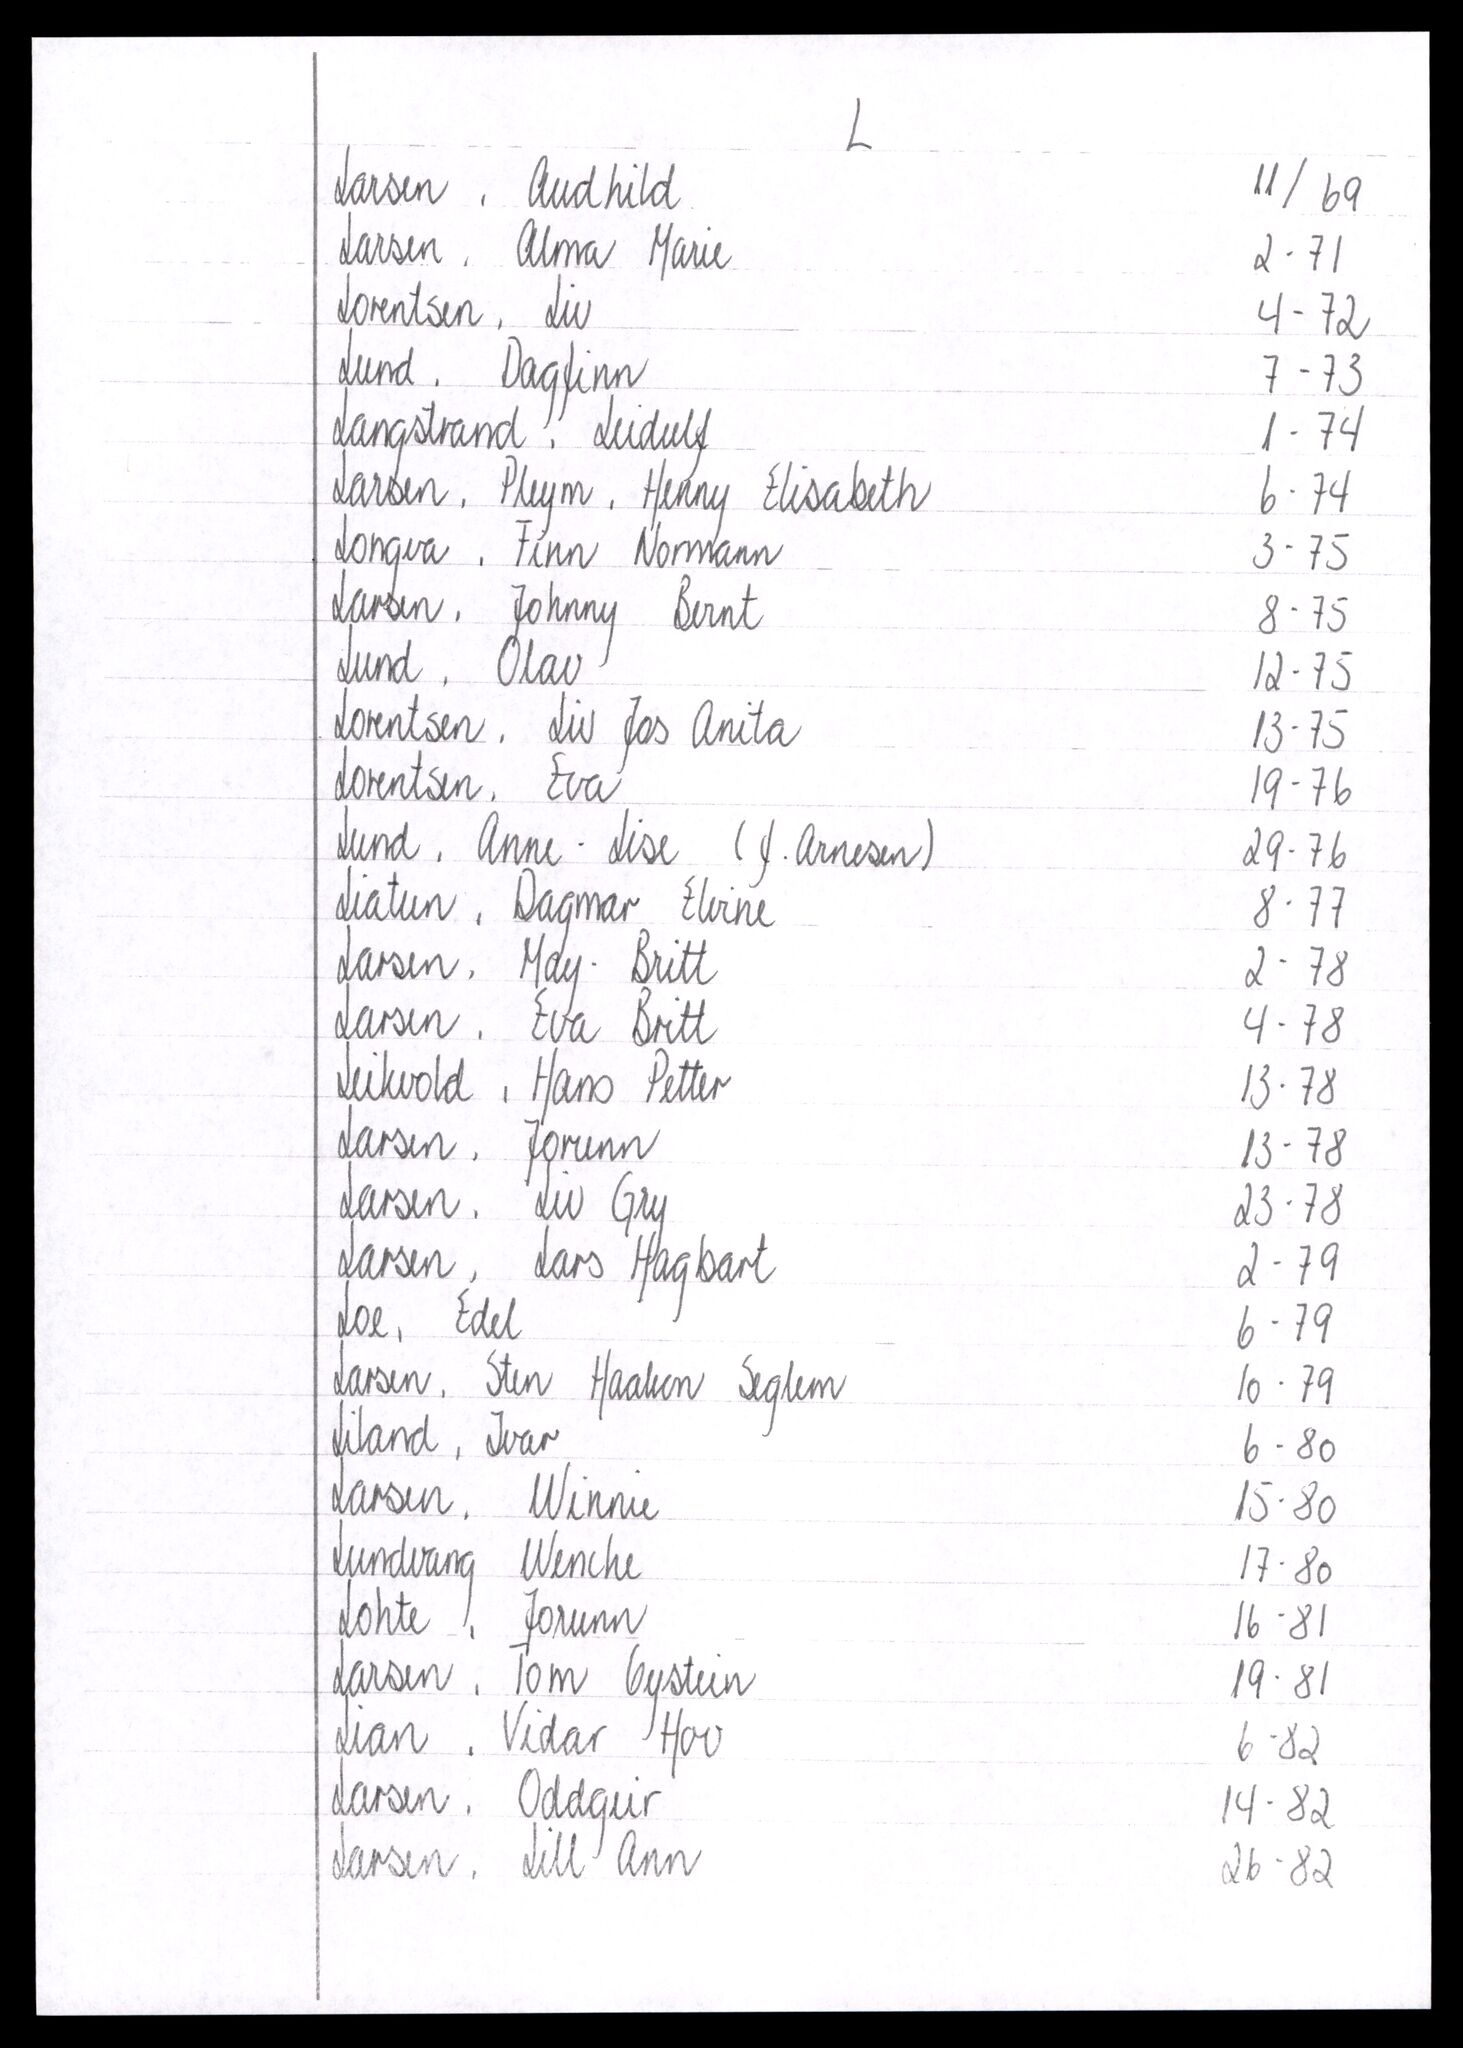 L
Larsen, Audhild 11/69
Larsen, Alma Marie 2-71
Lorentsen, Liv 4-72
Lund, Dagfinn 7-73
Langstrand, Leidulf 1-74
Larsen, Pleym, Henny Elisabeth 6-74
Longva, Finn Normann 3-75
Larsen, Johnny Bernt 8-75
Lund, Olav 12-75
Lorentsen, Liv Jos Anita 13-75
Lorentsen, Eva 19-76
Lund, Anne-Lise (f. Arnesen) 29-76
Liatun, Dagmar Elvine 8-77
Larsen, May-Britt 2-78
Larsen, Eva Britt 4-78
Leikvold, Hans Petter 13-78
Larsen, Jorunn 13-78
Larsen, Liv Gry 23-78
Larsen, Lars Hagbart 2-79
Loe, Edel 6-79
Larsen, Sten Haakon Seglem 10-79
Liland, Ivar 6-80
Larsen, Winnie 15-80
Lundvang Wenche 17-80
Lohte, Jorunn 16-81
Larsen, Tom Øystein 19-81
Lian, Vidar Hov 6-82
Larsen, Oddgeir 14-82
Larsen, Lill Ann 26-82